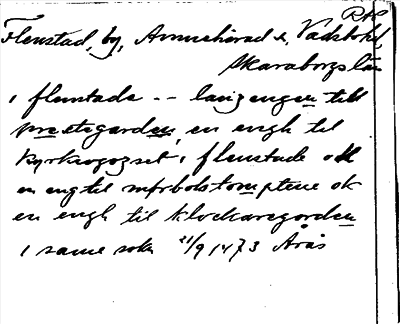 RAP
Flenstad, by, Amnehärad s, Vadsbo hd,
Skaraborgs län
i flenstada -- langengen till
prestegarden, en engh til
kyrkiogozset i flenstade ok
en eng til mjrbolstomptene ok
en engh til klockaregorden
i same sokn 21/9 1473 Årås